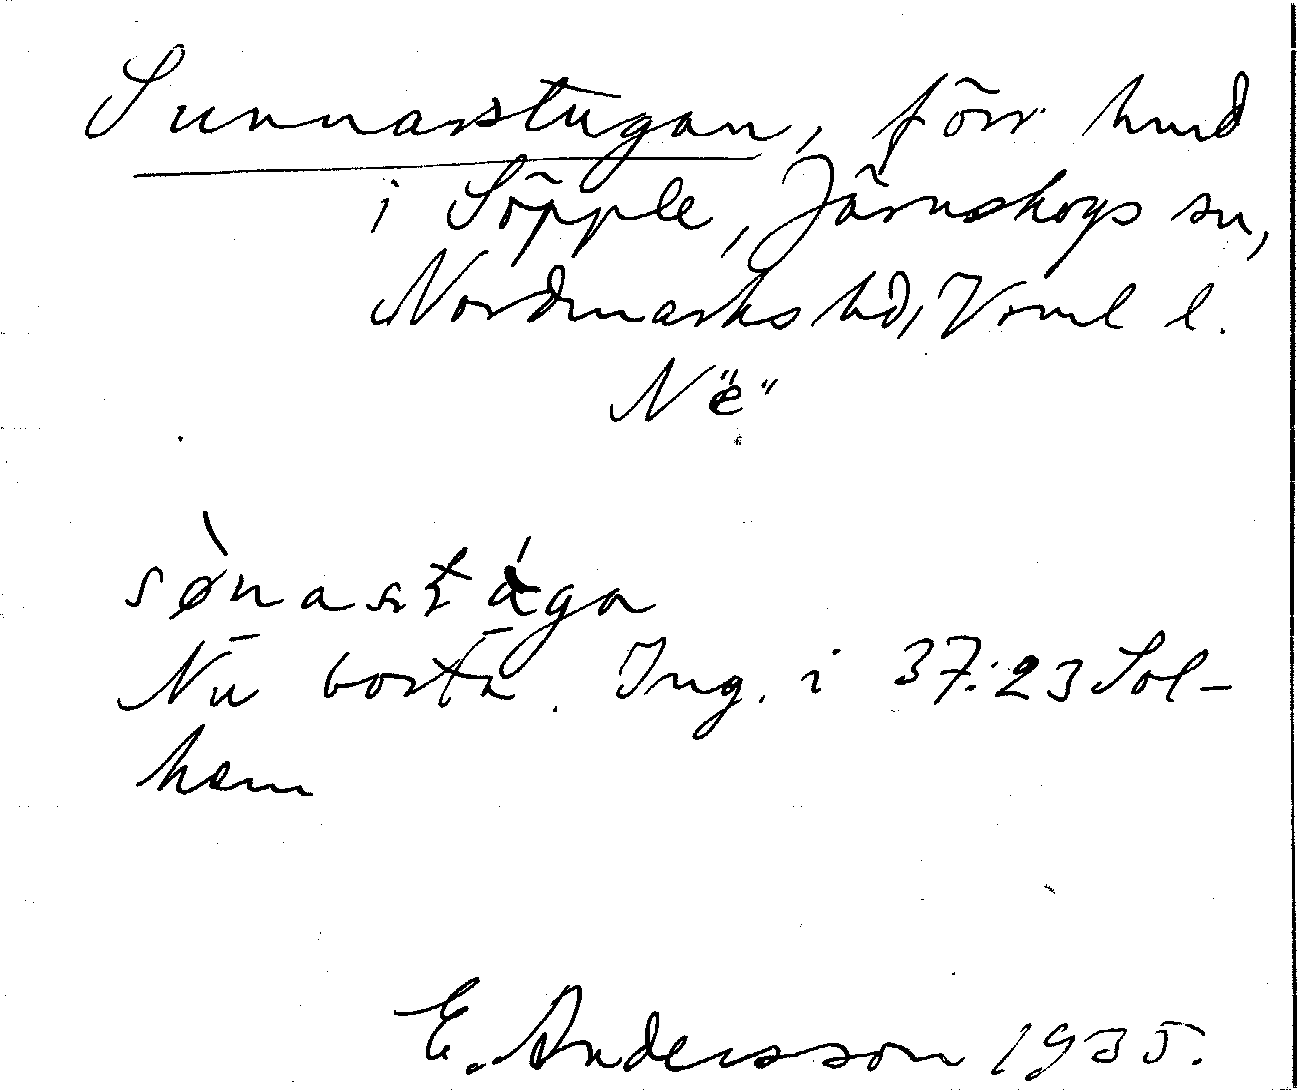 Sunnarstugan, förr hmd
i Söpple, Järnskogs sn,
Nordmarks hd, Vrml l.
N "ë"
Nu borta. Ing. i 37:23 Sol-
hem
E. Andersson 1935.